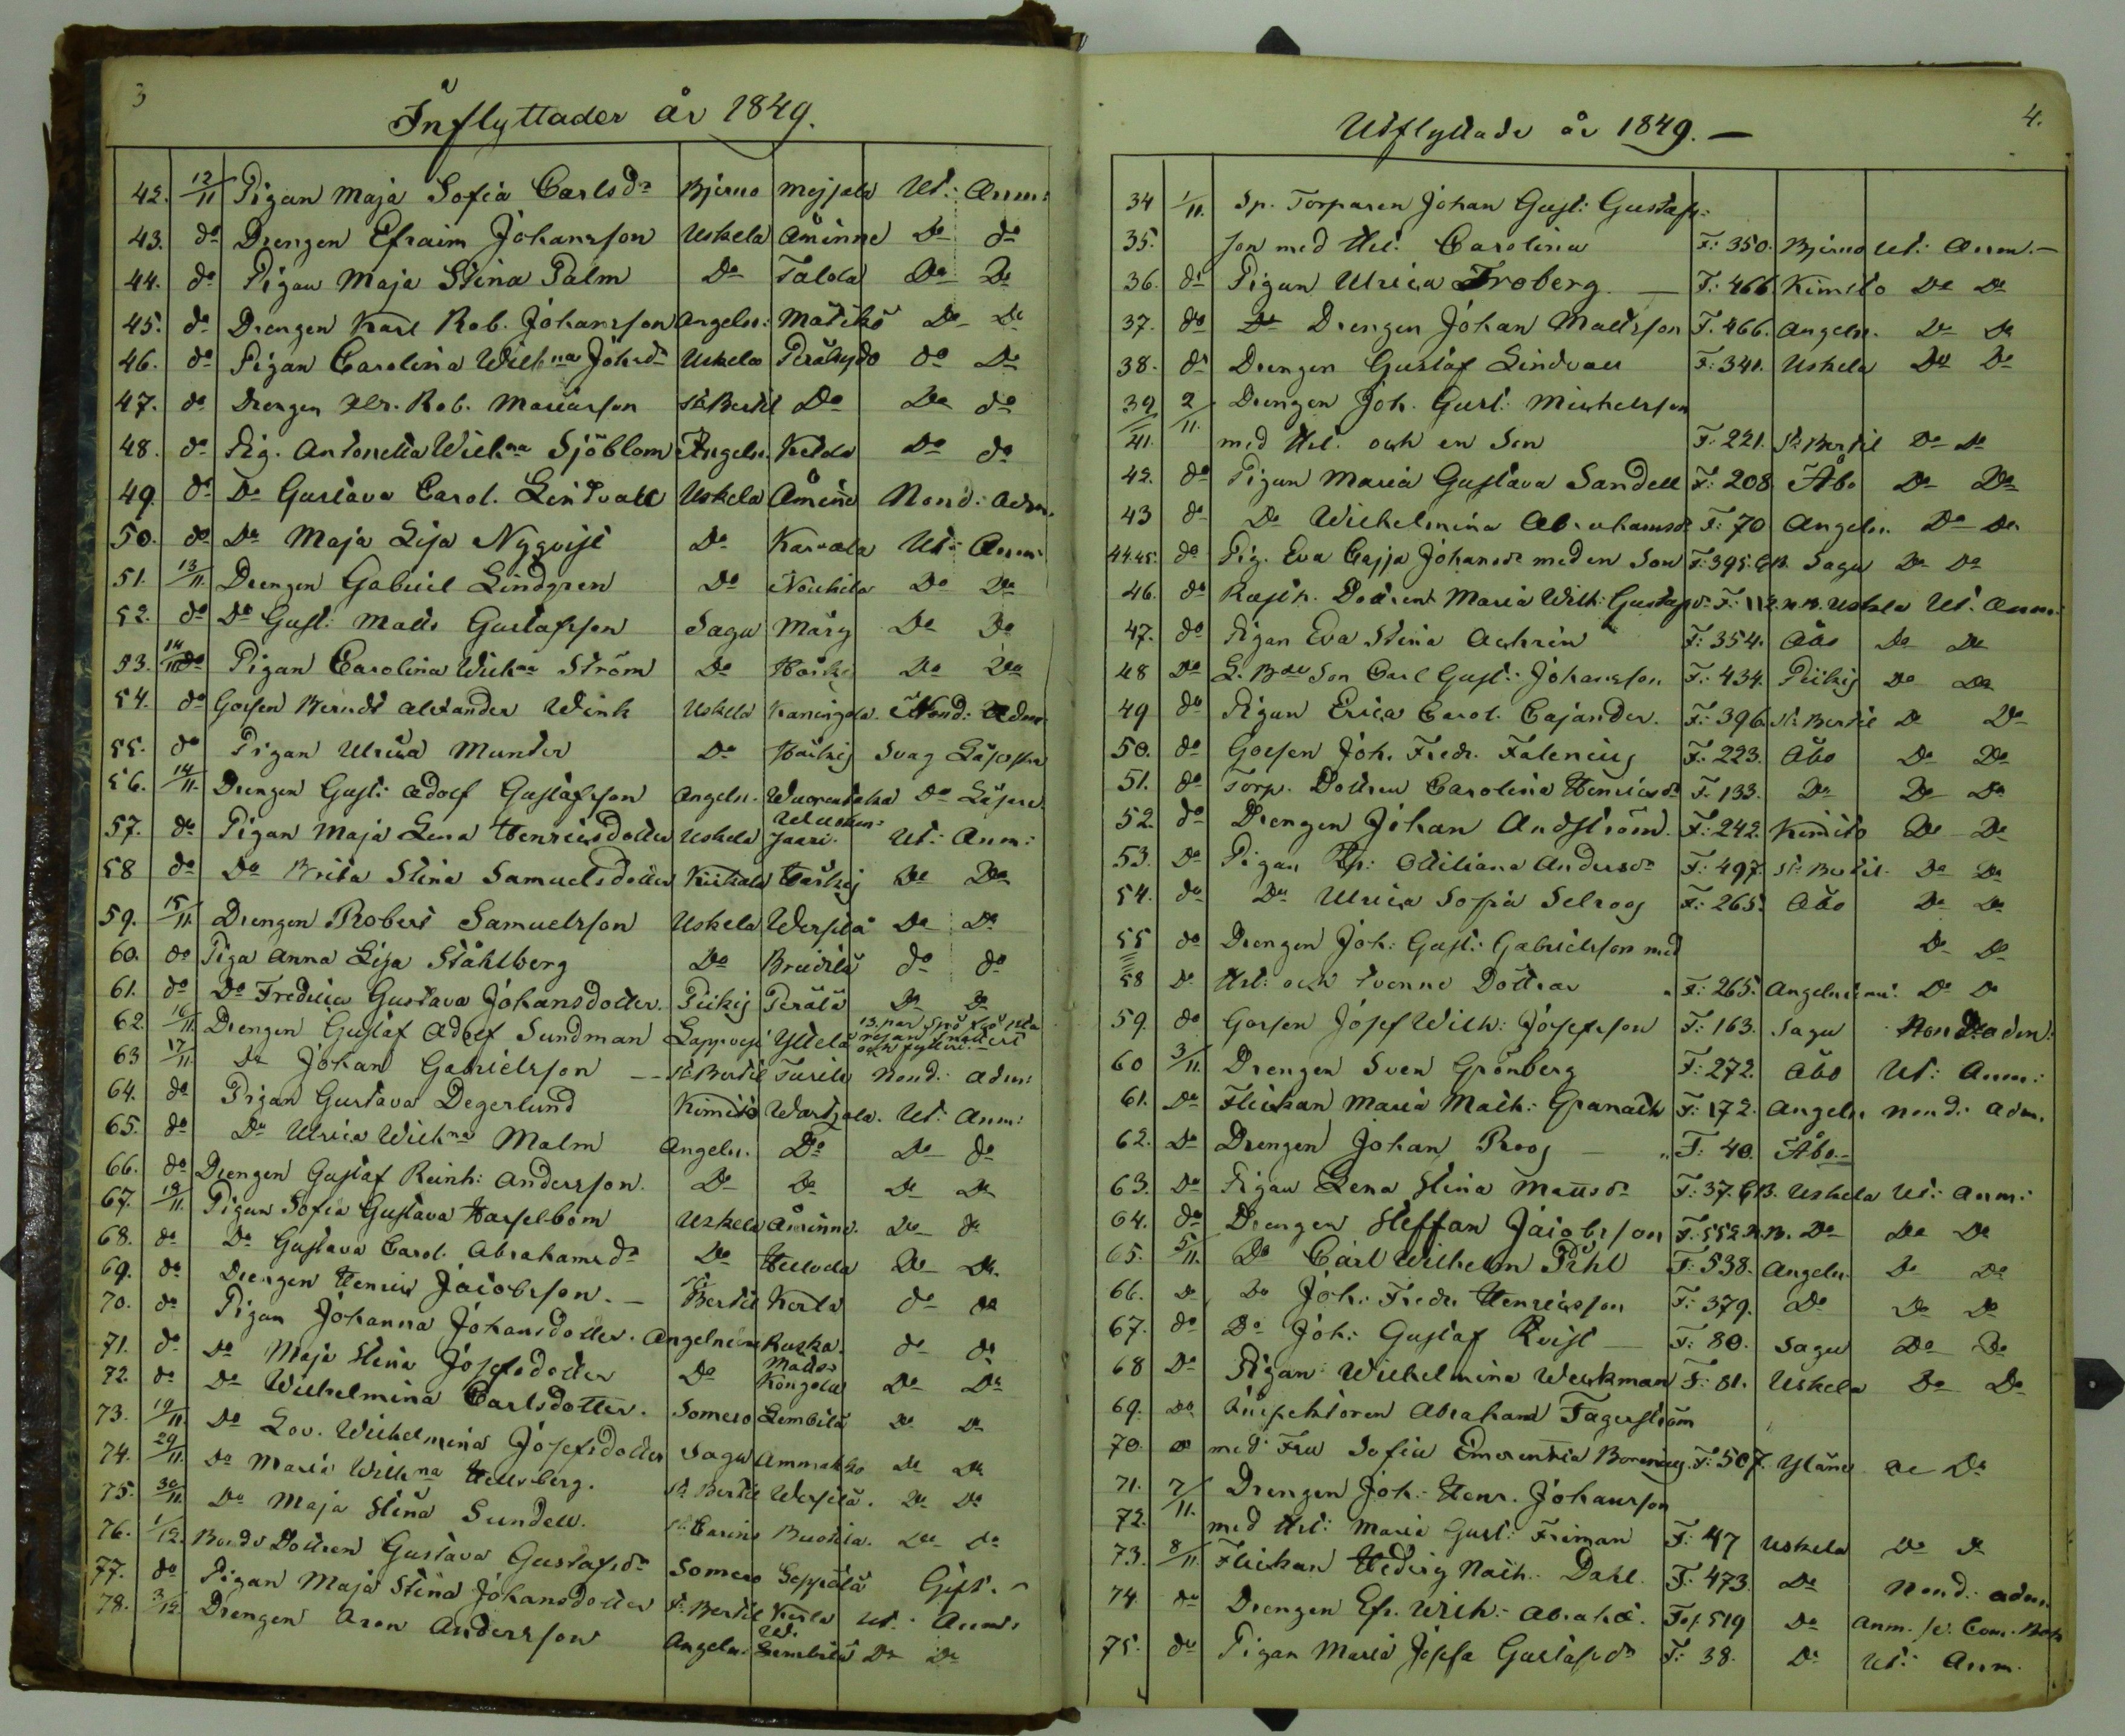 3
Inflyttader år 1849.
42. 12/11 Pigan Maja Sofia Carlsdr Bjerno Mejjala Ut: Anm:
43. do Drengen Efraim Johansson Uskela Åminne Do do
44. do Pigan Maja Stina Palm Do Talola Do Do
45. do Drengen Karl Rob. Johansson Angeln: Mätikö Do Do
46. do Pigan Carolina Wilhna Johsdr Uskela Peräkydö do Do
47. do Drengen Rob. Mariasson St Bertil Do Do do
48. do Pig. Antonetta Wilhna Sjöblom Angeln. Ketola Do do
49. do Do Gustava Carol. Lindvall Uskela Åmine Nond: Adm.
50. do Do Maja Lisa Nyqvist Do Karvala Ut: Anm:
51. 13/11. Drengen Gabriel Lindgren Do Do Do
52. do Do Gust: Matts Gustafsson Sagu Märy Do Do
53. 14/11 do Pigan Carolina Wilhna Ström Do Do Do
54. do Gossen Berndt Alexander Wink Uskela Kaningola. Nond: Adm:
55. do Pigan Ulrica Munter Do Svag
56. 14/11. Drengen Gust: Adolf Gustafsson Angeln. Do
57. do Pigan Maja Lena Henricsdotter Uskela Jaari. Ut: Anm:
58 do Do Brita Stina Samuelsdotter Kiikala Do Do
59. 15/11. Drengen Robert Samuelsson Uskela Wersilä Do Do
60. do Piga Anna Lisa Ståhlberg Do do do
61. do Do Fredrica Gustava Johansdotter. Piikis Perälä Do Do
62. 16/11. Drengen Gustaf Adolf Sundman Lappvesi Yllelä 13. par Spö
63 17/11 Do Johan Gabrielsson St Bertil Nond: Adm:
64. do Pigan Gustava Degerlund Kimito Wartsala. Ut: Anm:
65. do Do Ulrica Wilhna Malm Angeln. Do Do do
66. do Drengen Gustaf Reinh: Andersson. Do Do Do Do
67. 18/11. Pigan Sofia Gustava Hasselbom Uskela Åminne. Do do
68. do Do Gustava Carol. Abrahamsdr Do Do Do
69. do Drengen Henric Jacobsson. St Bertil Kerla do do
70. do Pigan Johanna Johansdotter. Angelniemi Ruska. do do
71. do Do Maja Stina Josefsdotter Do Matts= Kongola Do Do
72. do Do Wilhelmina Carlsdotter. Somero Lembilä Do Do
73. 19/11. Do Lov. Wilhelmina Josefsdotter Sagu Ammakko Do Do
74. 29/11. Do Maria Wilhna Hellsberg. St Bertil Wersilä. Do Do
75. 30/11. Do Maja Stina Sundell. St Carins Do Do
76. 1/12. Bonde Dottren Gustava Gustafsdr Somero Seppälä Gift.
77. do Pigan Maja Stina Johansdotter St Bertil Kerla Ut: Anm:
78. 3/12 Drengen Aron Andersson Angeln. Lembilä Do Do
4.
Utflyttade år 1849. —
34 1/11. Sp. Torparen Johan Gust: Gustafs=
35. son med Hst: Carolina F: 350. Bjerno Ut: Anm.—
36. do Pigan Ulrica Froberg — F: 466 Kimito Do Do
37. do Drengen Johan Mattsson F. 466. Angeln. Do Do
38. do Drengen Gustaf Lindvall F: 341. Uskela Do Do
39 2/11. Drengen Joh. Gust: Michelsson
41. med Hst. och en Son F: 221. St Bertil Do Do
42. do Pigan Maria Gustava Sandell F: 208 Åbo Do Do
43 do Do Wilhelmina Abrahamsdr F: 70 Angeln. Do Do
44.45. do Pig. Eva Cajsa Johansdr med en Son F: 395. GB. Sagu Do Do
46. do Dottren Maria Wilh: Gustafsdr F: 112. N.B. Uskela Ut: Anm:
47. do Pigan Eva Stina Achrén F: 354. Åbo Do Do
48 Do Son Carl Gust: Johansson F: 434. Piikis Do Do
49 do Pigan Erica Carol. Cajander. F: 396 St Bertil Do Do
50. do Gossen Joh. Fredr. Falenius F: 223. Åbo Do Do
51. do Torp. Dottren Carolina Henricsdr F: 133. Do Do Do
52. do Drengen Johan Andström. F: 242. Kimito Do Do
53. Do Pigan Ottiliana Andersdr F: 497. St Bertil. Do Do
54. do Do Ulrica Sofia Selroos F: 265. Åbo Do Do
55 do Drengen Joh: Gust: Gabrielsson med Do Do
58 Do Hst: och tvenne Döttrar F: 265. Angelniemi. Do Do
59. do Gossen Josef Wilh: Josefsson F: 163. Sagu Nond adm:
60 3/11. Drengen Sven Grönberg F: 272. Åbo Ut: Anm:
61. Do Flickan Maria Math: Granath F: 172. Angeln nond: adm.
62. Do Drengen Johan Roos — F: 40. Åbo.—
63. Do Pigan Lena Stina Mattsdr F: 37. GB. Uskela Ut: Anm:
64. do Drengen Steffan Jacobsson F: 552. N.B. Do Do Do
65. 5/11. Do Carl Wilhelm Pihl F: 538. Angeln. Do Do
66. Do Do Joh: Fredr. Henricsson F: 379. Do Do Do
67. do Do Joh: Gustaf Kvist — F: 80. Sagu Do Do
68 Do Pigan Wilhelmina Weckman F: 81. Uskela Do Do
69. Do Inspektoren Abraham Fagerström
70. do med Fru Sofia Emerentia Borenius. F: 507. Yläne Do Do
71. 7/11. Drengen Joh: Henr. Johansson
72. med Hst: Maria Gust: Friman F: 47 Uskela Do Do
73. 8/11. Flickan Hedvig Nath: Dahl. F: 473. Do Nond: adm.
74 do Drengen Efr. Wilh: Abrahs. Fol. 519 Do Anm. Com. Bok
75. do Pigan Maria Josefa Gustafsdr F: 38. Do Ut: Anm.